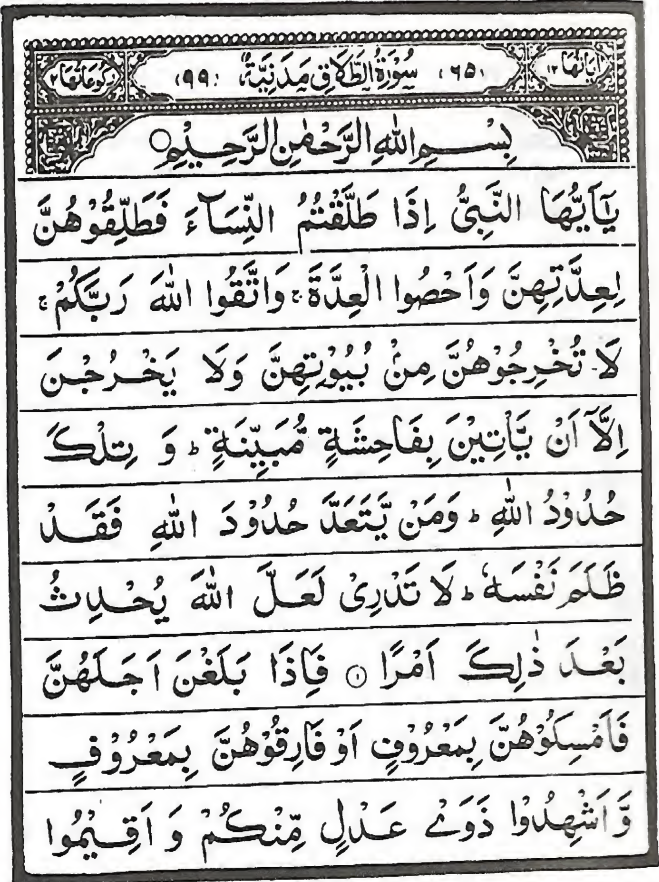 اٰيَاتُهَا ١٢ (٦٥) سُوْرَةُ الطَّلَاقِ مَدَنِيَّةٌ (٩٩) رُكُوْعَاتُهَا ٢
بِسْمِ اللهِ الرَّحْمٰنِ الرَّحِيْمِ ○
يٰۤاَيُّهَا النَّبِىُّ اِذَا طَلَّقْتُمُ النِّسَآءَ فَطَلِّقُوْهُنَّ
لِعِدَّتِهِنَّ وَاَحْصُوا الْعِدَّةَ ۚ وَاتَّقُوا اللهَ رَبَّكُمْ ۚ
لَا تُخْرِجُوْهُنَّ مِنْۢ بُيُوْتِهِنَّ وَلَا يَخْرُجْنَ
اِلَّاۤ اَنْ يَّاْتِيْنَ بِفَاحِشَةٍ مُّبَيِّنَةٍ ؕ وَ تِلْكَ
حُدُوْدُ اللهِ ؕ وَمَنْ يَّتَعَدَّ حُدُوْدَ اللهِ فَقَدْ
ظَلَمَ نَفْسَهٗ ؕ لَا تَدْرِىْ لَعَلَّ اللهَ يُحْدِثُ
بَعْدَ ذٰلِكَ اَمْرًا ١ فَاِذَا بَلَغْنَ اَجَلَهُنَّ
فَاَمْسِكُوْهُنَّ بِمَعْرُوْفٍ اَوْ فَارِقُوْهُنَّ بِمَعْرُوْفٍ
وَّ اَشْهِدُوْا ذَوَىْ عَدْلٍ مِّنْكُمْ وَ اَقِيْمُوا